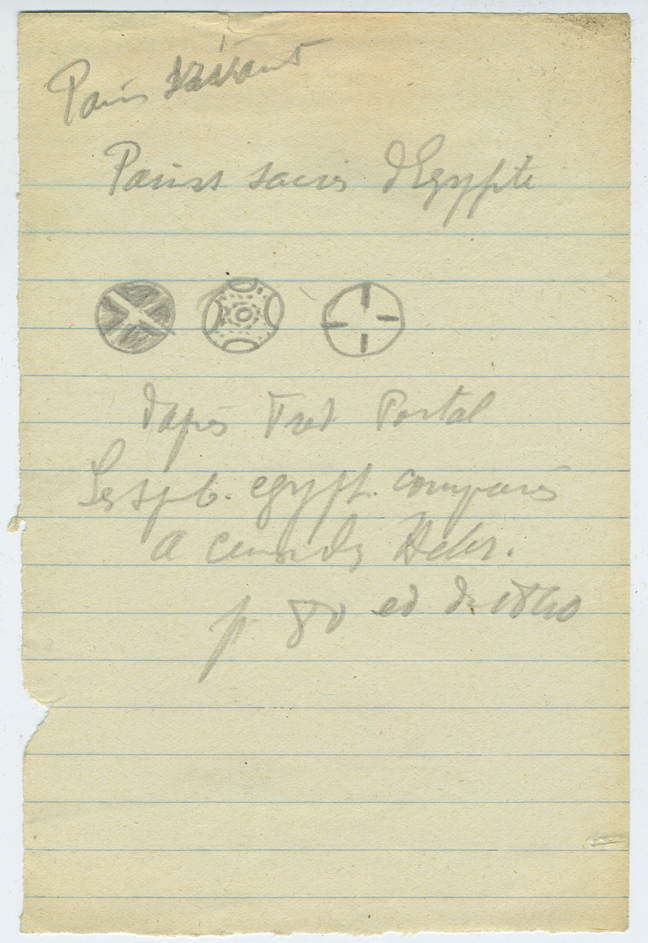 Pains
Pains sacrés d'Egypte
d'après Fred Portal
Les symb. egypt. comparés
A ceux des Hebr.
p. 80 ed de 1840